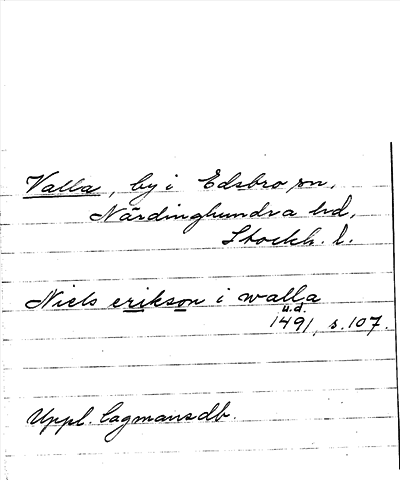 Valla, by i Edsbro sn,
Närdinghundra hd,
Stockh. l.
Niels erikson i walla
u.d.
1491, s. 107.
Uppl. lagmansdb.